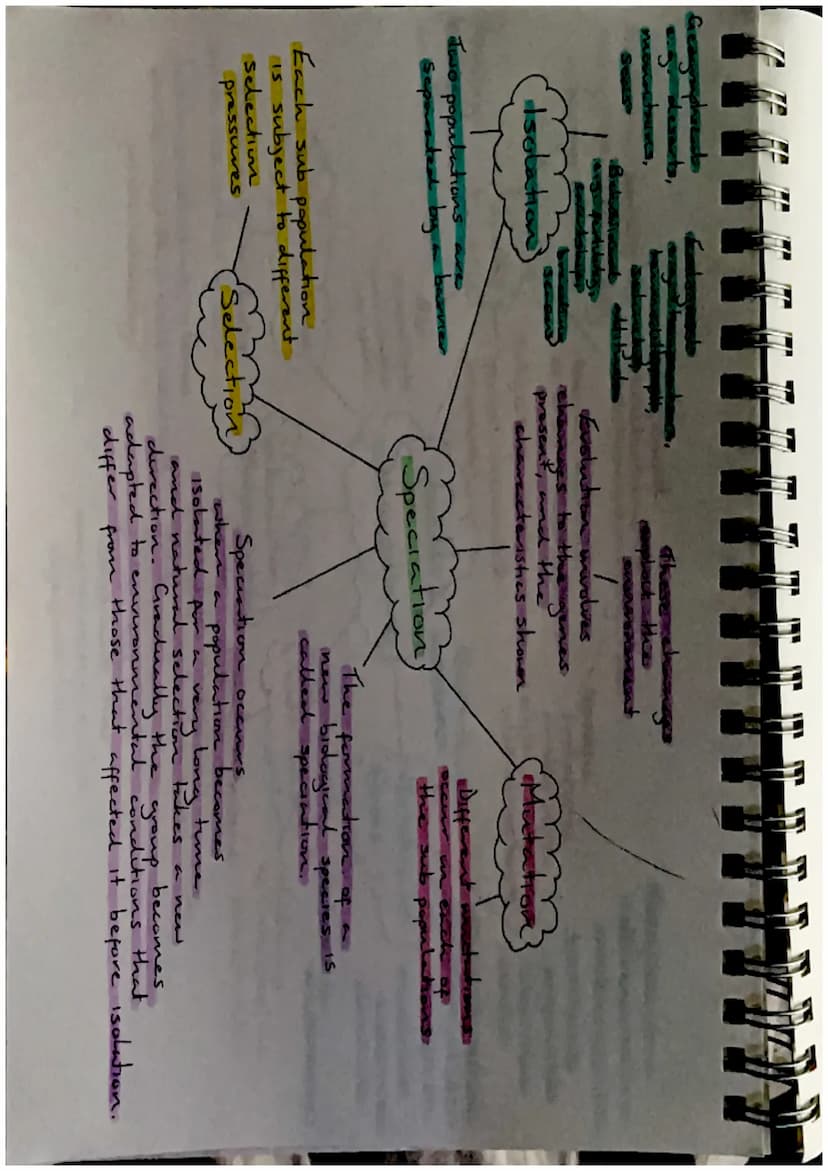 Geographical
e.g. deserts,
mountains,
seas
Behavioural
e.g.
season
Ecological
e.g. temperature,
altitude
Isolation
Two populations are
separated by a barrier
These changes
exploit the
environment
Evolution involves
changes to the genes
present, and the
characteristics shown
Speciation
Mutation
Different mutations
occur in each of
the sub populations
Each sub population
is subject to different
selection
pressures
Selection
The formation of a
new biological species is
called speciation.
Speciation occurs
when a population becomes
isolated for a very long time
and natural selection takes a new
direction. Gradually the group becomes
adapted to environmental conditions that
differ from those that affected it before isolation.